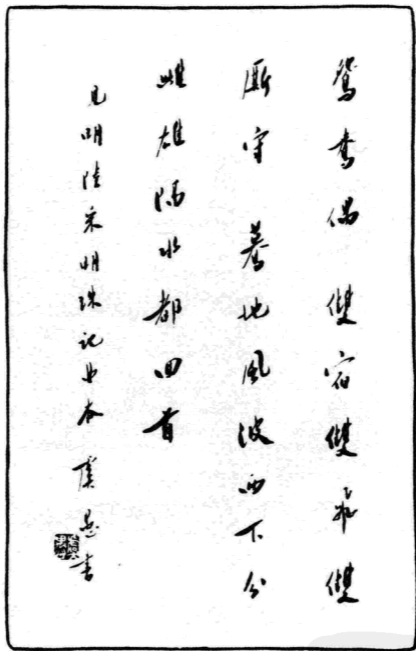 鴛鴦偶雙宿雙飛雙
厮守驀地風波兩下分
雌雄隔水都回首
見明陸采明珠記曲本虞愚書